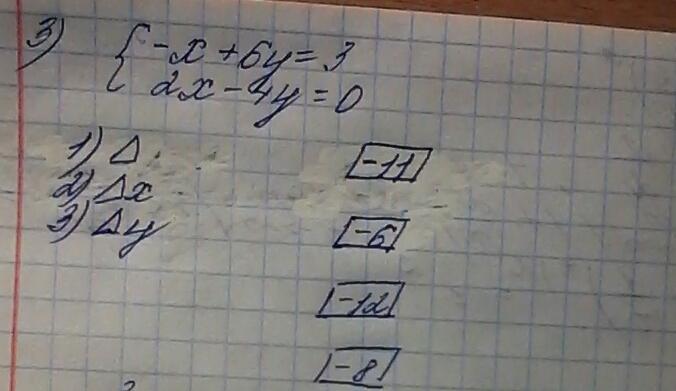 3) { -x + 6y = 3
2x - 4y = 0
1) Δ
-11
2) Δx
3) Δy
-6
-12
-8